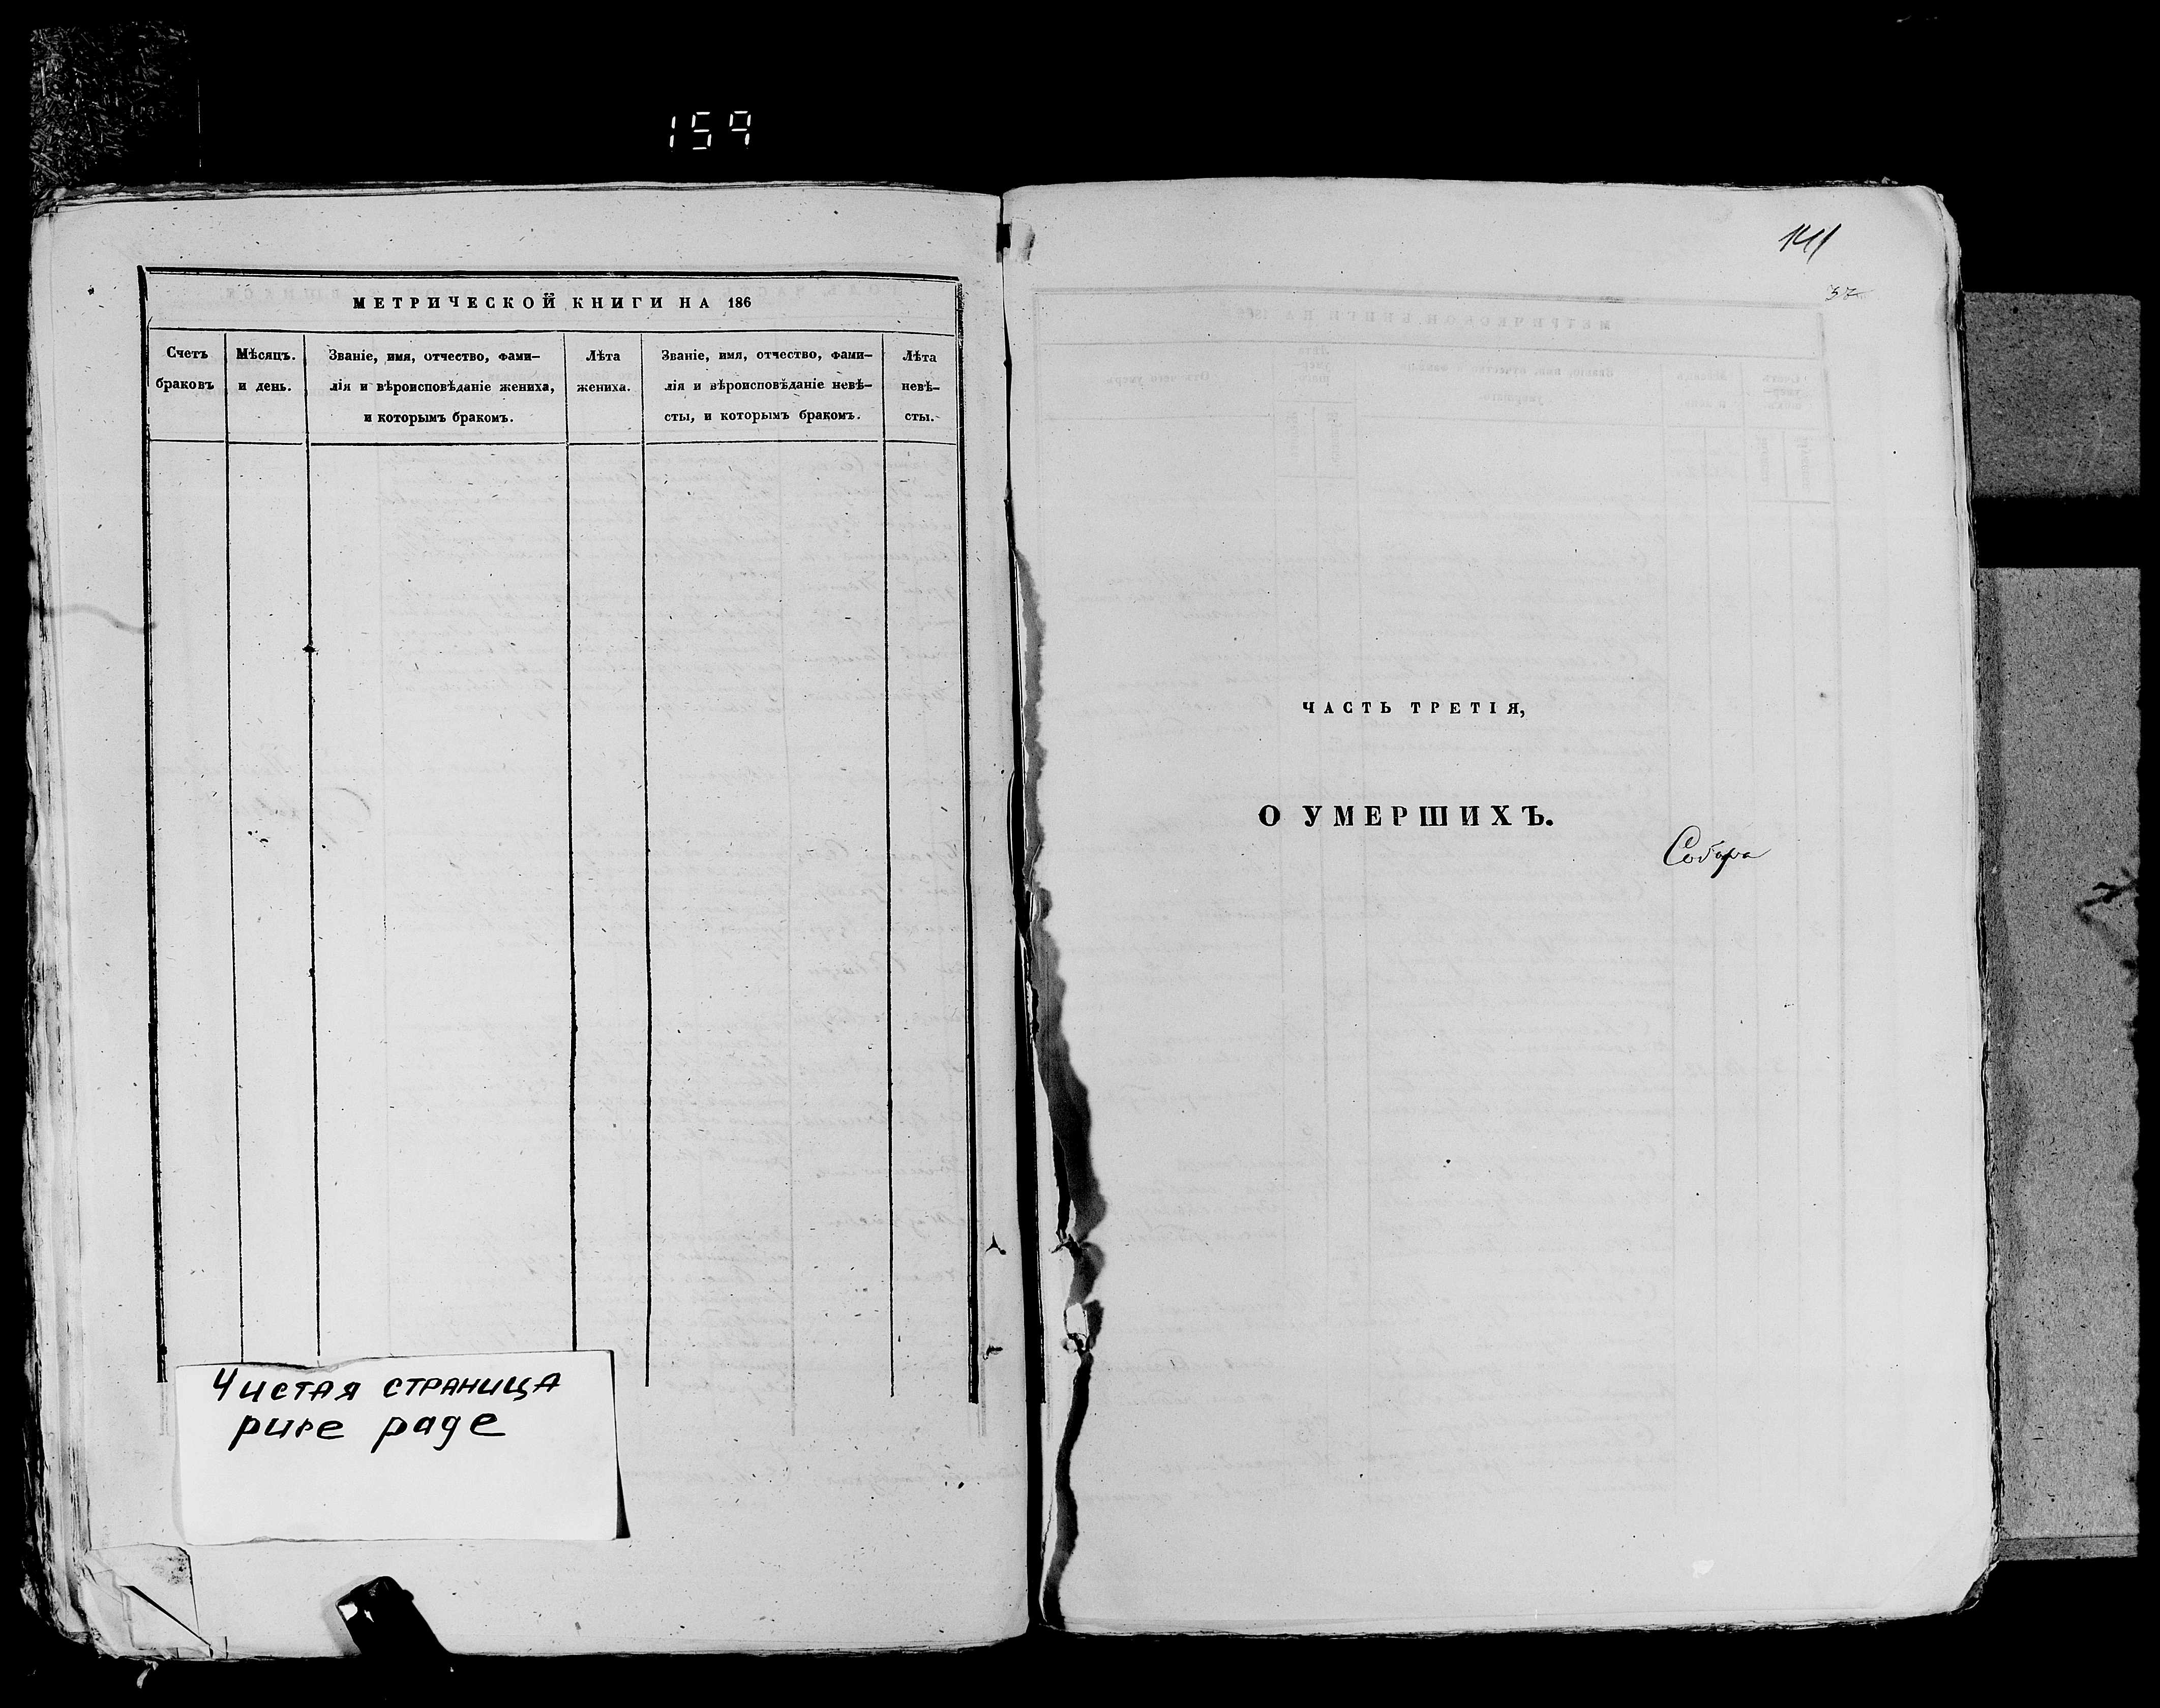 159
МЕТРИЧЕСКОЙ КНИГИ НА 186
Счетъ
браковъ
Мѣсяцъ.
и день.
Званіе, имя, отчество, фами-
лія и вѣроисповѣданіе жениха,
и которымъ бракомъ.
Лѣта
жениха.
Званіе, имя, отчество, фами-
лія и вѣроисповѣданіе невѣ-
сты, и которымъ бракомъ.
Лѣта
невѣ-
сты.
Чистая страница
pure page
141
37
ЧАСТЬ ТРЕТІЯ,
О УМЕРШИХЪ.
Собора